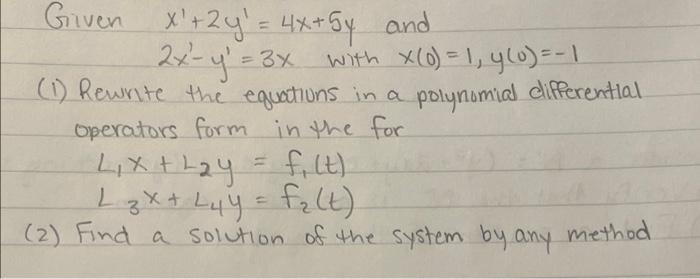 Given x'+2y' = 4x+5y and
2x'-y' = 3x with x(0)=1, y(0)=-1
(1) Rewrite the equations in a polynomial differential
operators form in the for
L₁x + L₂y = f₁(t)
L₃x + L₄y = f₂(t)
(2) Find a solution of the system by any method